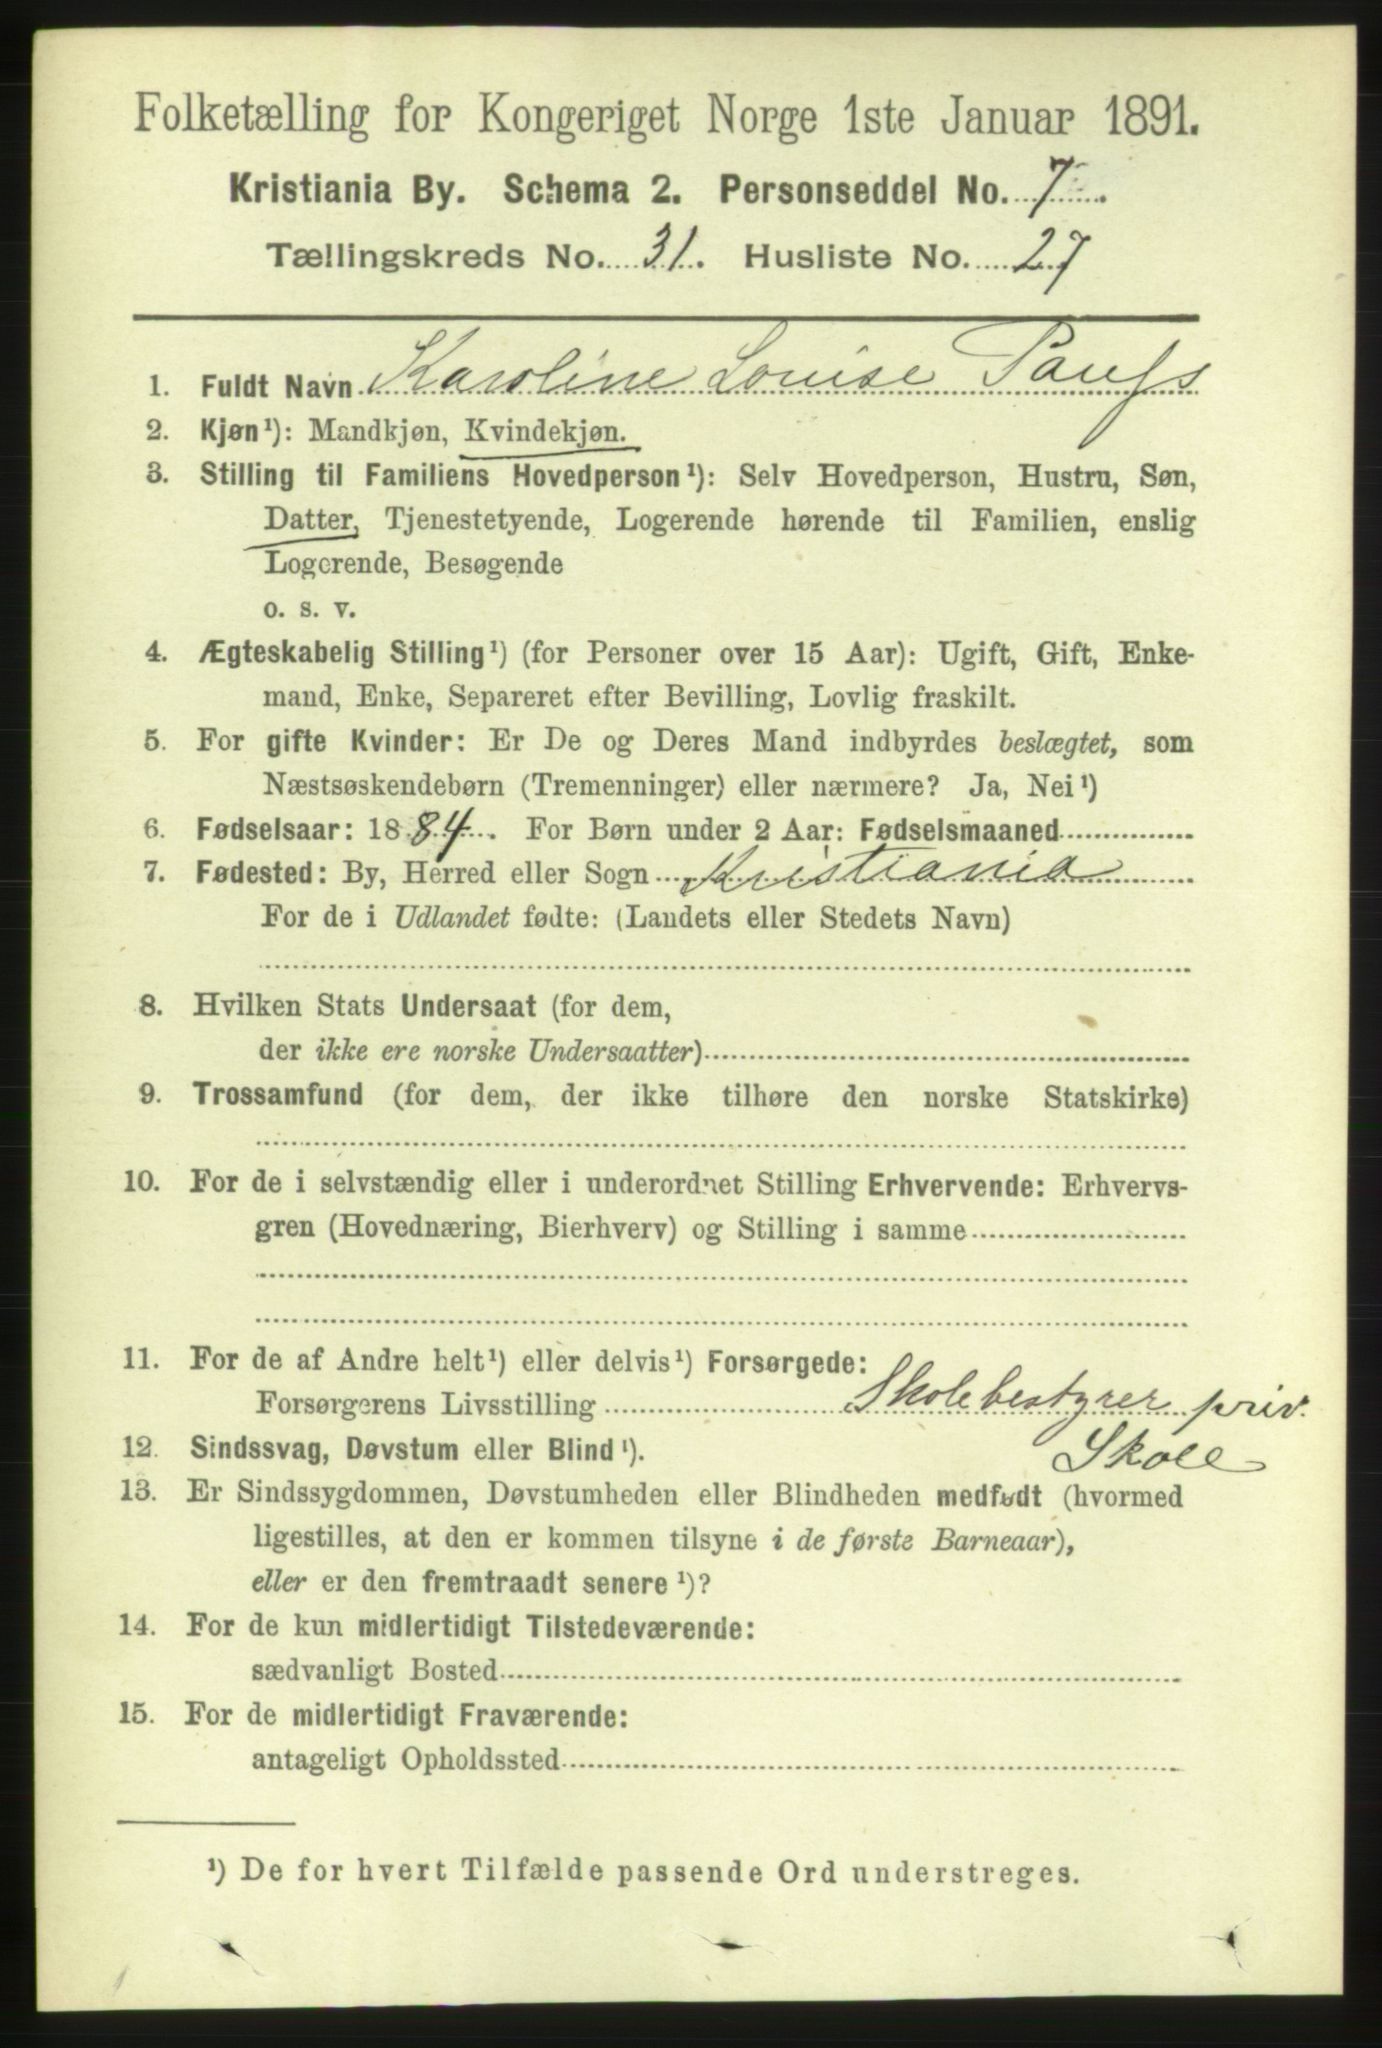 Folketælling for Kongeriget Norge 1ste Januar 1891.
Kristiania By. Schema 2. Personseddel No. 7.
Tællingskreds No. 31. Husliste No. 27
1. Fuldt Navn Karoline Louise Paus
2. Kjøn¹): Mandkjøn, Kvindekjøn.
3. Stilling til Familiens Hovedperson¹): Selv Hovedperson, Hustru, Søn,
Datter, Tjenestetyende, Logerende hørende til Familien, enslig
Logerende, Besøgende
o. s. v.
4. Ægteskabelig Stilling¹) (for Personer over 15 Aar): Ugift, Gift, Enke-
mand, Enke, Separeret efter Bevilling, Lovlig fraskilt.
5. For gifte Kvinder: Er De og Deres Mand indbyrdes beslægtet, som
Næstsøskendebørn (Tremenninger) eller nærmere? Ja, Nei¹)
6. Fødselsaar: 1884. For Børn under 2 Aar: Fødselsmaaned
7. Fødested: By, Herred eller Sogn Kristiania
For de i Udlandet fødte: (Landets eller Stedets Navn)
8. Hvilken Stats Undersaat (for dem,
der ikke ere norske Undersaatter)
9. Trossamfund (for dem, der ikke tilhøre den norske Statskirke)
10. For de i selvstændig eller i underordnet Stilling Erhvervende: Erhvervs-
gren (Hovednæring, Bierhverv) og Stilling i samme
11. For de af Andre helt¹) eller delvis¹) Forsørgede:
Forsørgerens Livsstilling Skolebestyrer priv.
Skole
12. Sindssvag, Døvstum eller Blind¹).
13. Er Sindssygdommen, Døvstumheden eller Blindheden medfødt (hvormed
ligestilles, at den er kommen tilsyne i de første Barneaar),
eller er den fremtraadt senere¹)?
14. For de kun midlertidigt Tilstedeværende:
sædvanligt Bosted
15. For de midlertidigt Fraværende:
antageligt Opholdssted
¹) De for hvert Tilfælde passende Ord understreges.